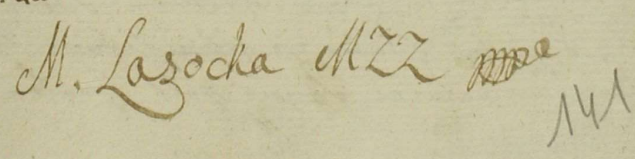 M. Lasocka MZZ
141